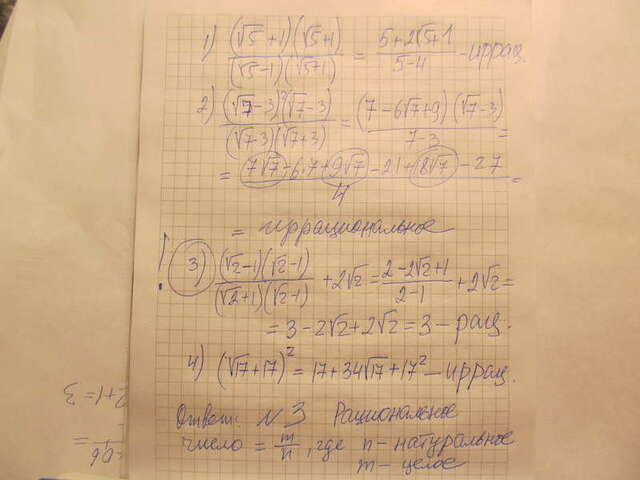 1) (√5+1)(√5+1)/(√5-1)(√5+1) = 5+2√5+1/5-4 - иррац.
2) (√7-3)²(√7-3)/(√7-3)(√7+3) = (7-6√7+9)(√7-3)/7-3 =
= 7√7-6·7+9√7-21+18√7-27/4 =
= иррациональное
! 3) (√2-1)(√2-1)/(√2+1)(√2-1) + 2√2 = 2-2√2+1/2-1 + 2√2 =
= 3-2√2+2√2 = 3 - рац.
4) (√17+17)² = 17+34√17+17² - иррац.
Ответ: N3 Рациональное
число = m/n, где n - натуральное
m - целое